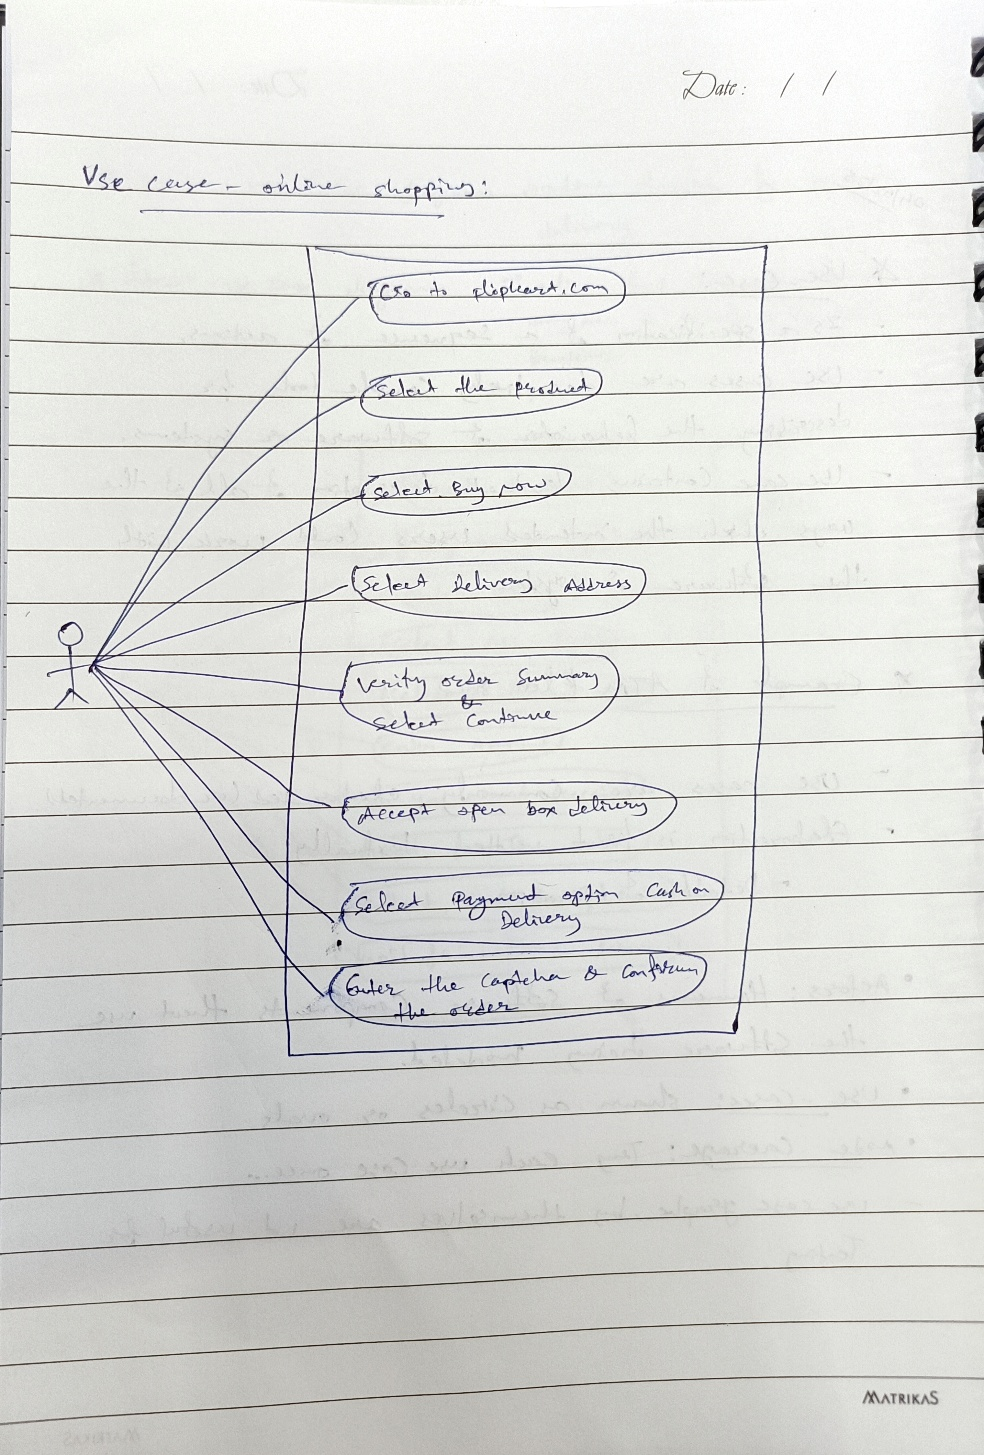 Date: / /
Use case - online shopping:
Go to flipkart.com
Select the product
Select Buy now
Select Delivery Address
Verify order Summary
&
Select Continue
Accept open box delivery
Select Payment option Cash on
Delivery
Enter the captcha & Confirm
the order
MATRIKAS